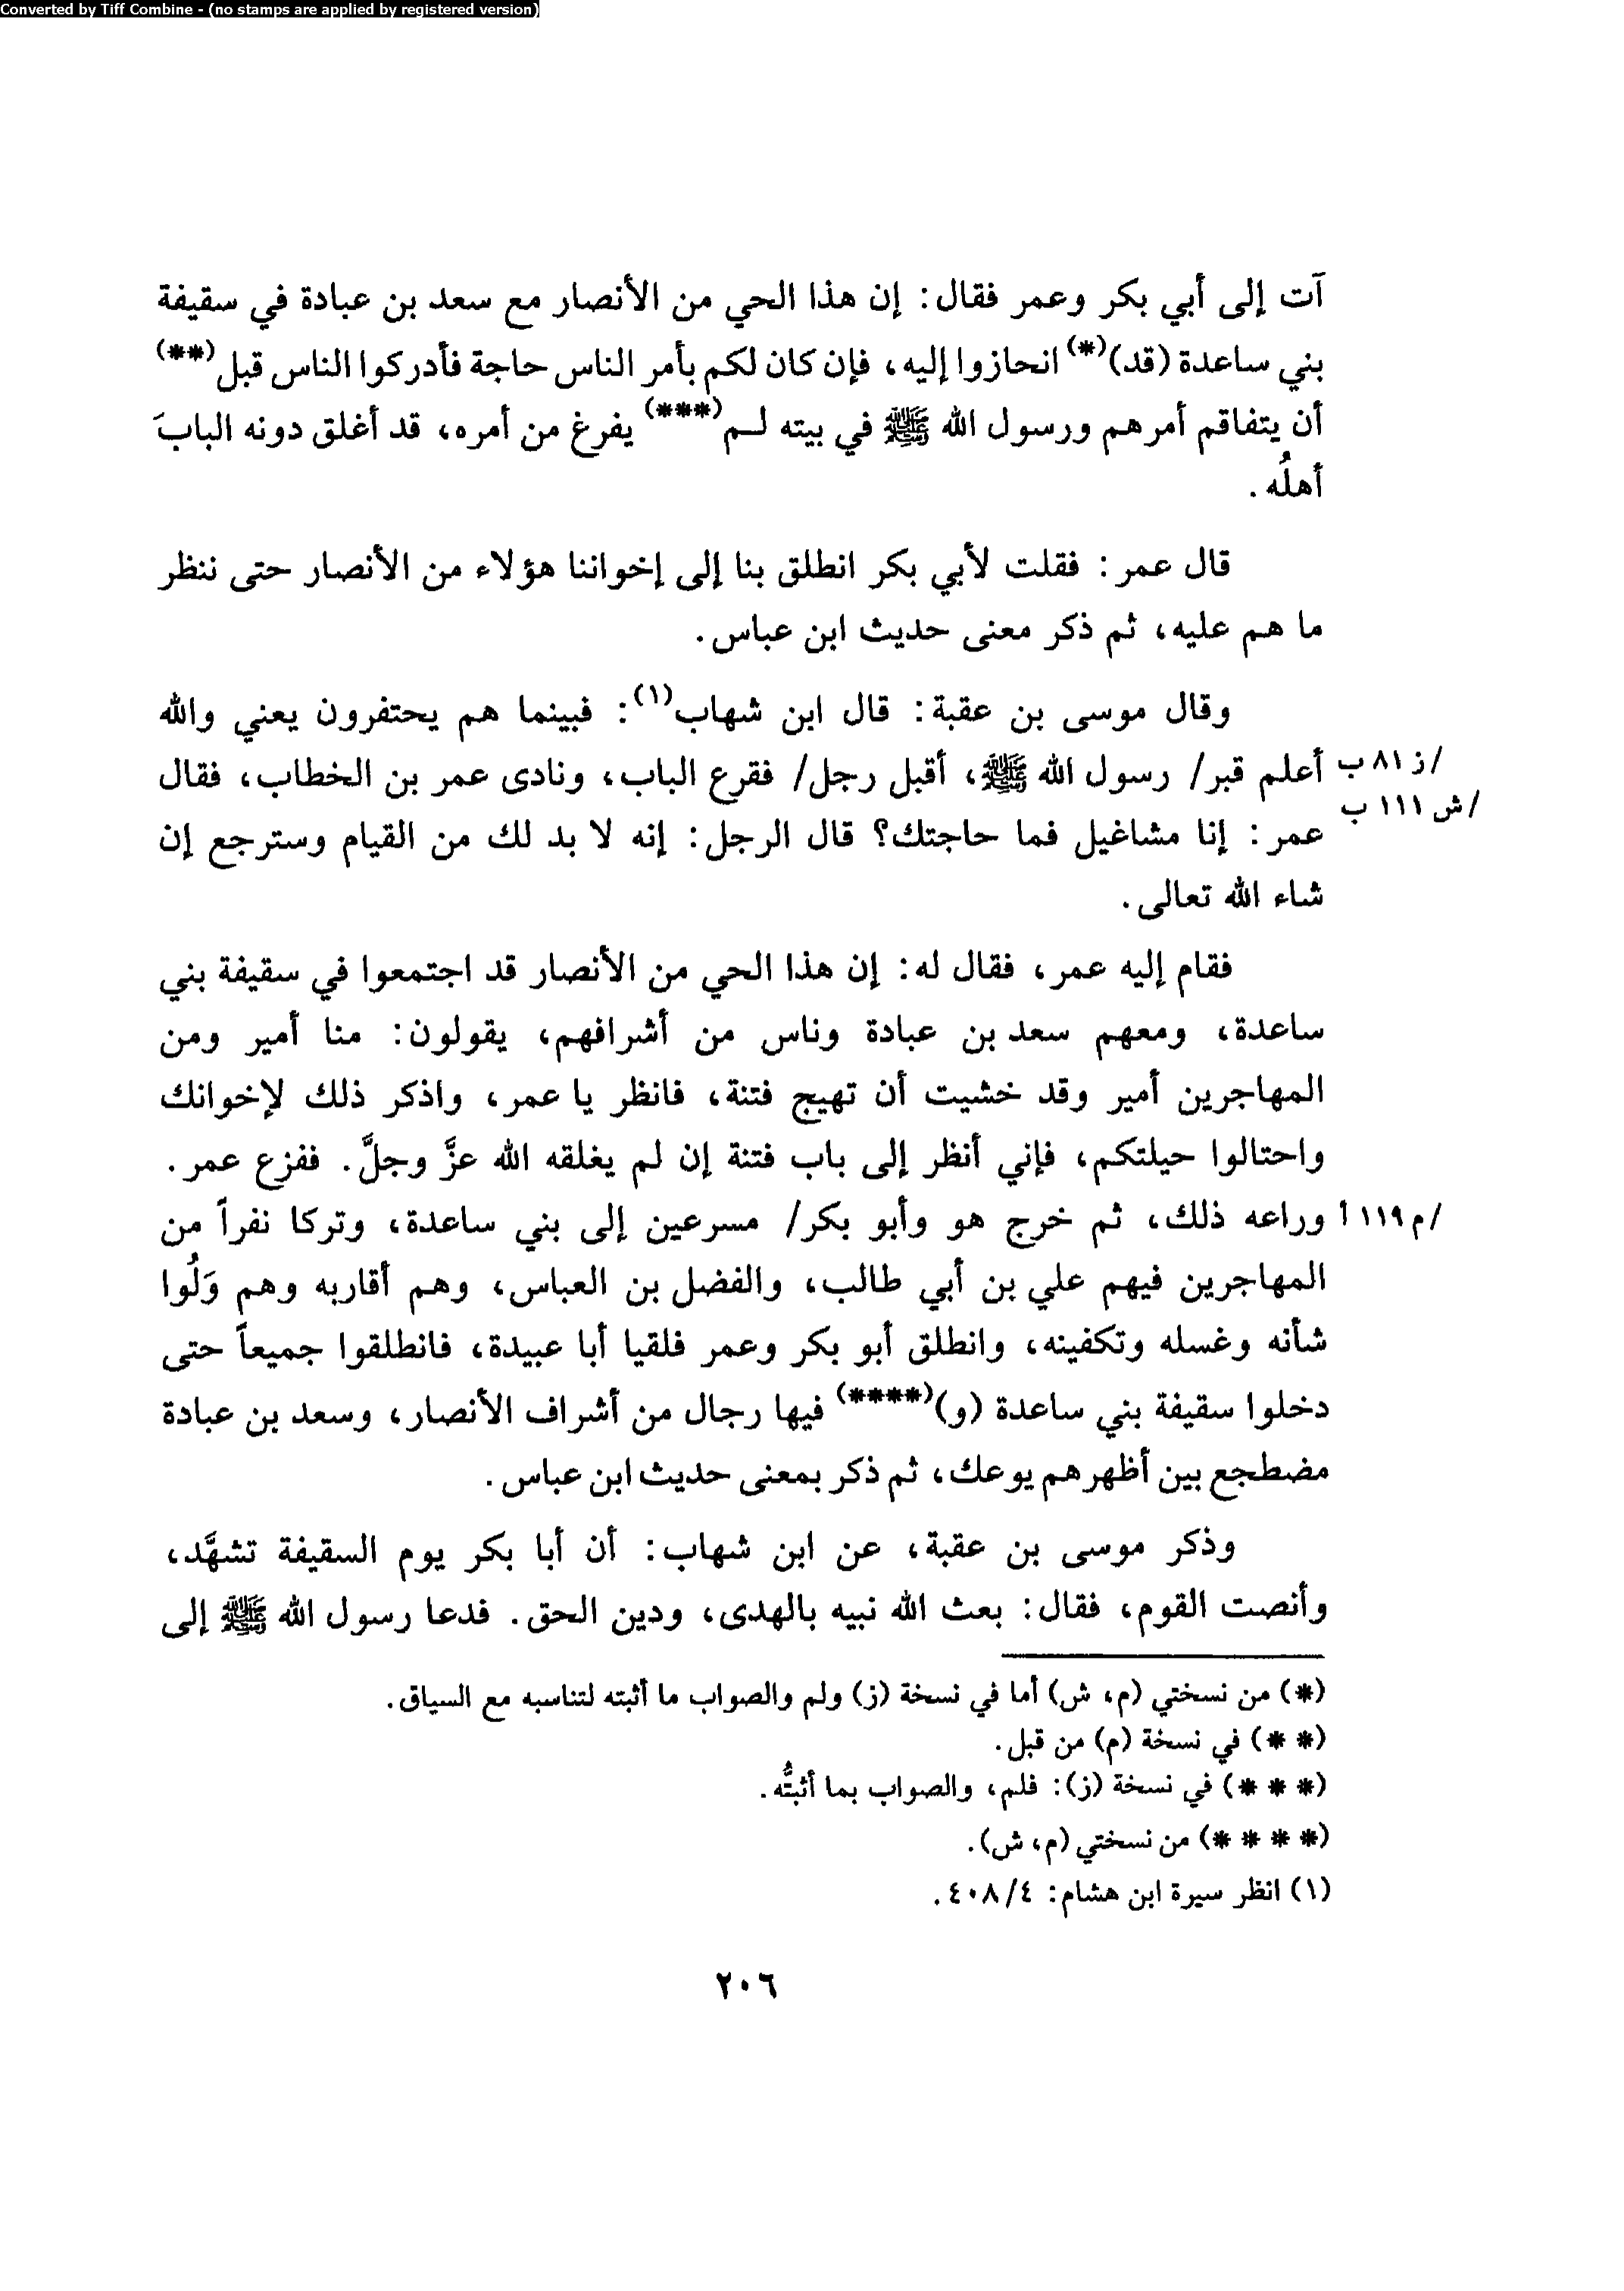 Converted by Tiff Combine - (no stamps are applied by registered version)
آت إلى أبي بكر وعمر فقال: إن هذا الحي من الأنصار مع سعد بن عبادة في سقيفة
بني ساعدة (قد)(*) انحازوا إليه، فإن كان لكم بأمر الناس حاجة فأدركوا الناس قبل(**)
أن يتفاقم أمرهم ورسول الله ﷺ في بيته لـم(***) يفرغ من أمره، قد أغلق دونه البابَ
أهلُه.
قال عمر: فقلت لأبي بكر انطلق بنا إلى إخواننا هؤلاء من الأنصار حتى ننظر
ما هم عليه، ثم ذكر معنى حديث ابن عباس.
وقال موسى بن عقبة: قال ابن شهاب(١): فبينما هم يحتفرون يعني والله
أعلم قبر/ رسول الله ﷺ، أقبل رجل/ فقرع الباب، ونادى عمر بن الخطاب، فقال
/ز ٨١ ب
/ش ١١١ ب
عمر: إنا مشاغيل فما حاجتك؟ قال الرجل: إنه لا بد لك من القيام وسترجع إن
شاء الله تعالى.
فقام إليه عمر، فقال له: إن هذا الحي من الأنصار قد اجتمعوا في سقيفة بني
ساعدة، ومعهم سعد بن عبادة وناس من أشرافهم، يقولون: منا أمير ومن
المهاجرين أمير وقد خشيت أن تهيج فتنة، فانظر يا عمر، واذكر ذلك لإخوانك
واحتالوا حيلتكم، فإني أنظر إلى باب فتنة إن لم يغلقه الله عزَّ وجلَّ. ففزع عمر.
وراعه ذلك، ثم خرج هو وأبو بكر/ مسرعين إلى بني ساعدة، وتركا نفراً من
/م ١١٩ أ
المهاجرين فيهم علي بن أبي طالب، والفضل بن العباس، وهم أقاربه وهم وَلُوا
شأنه وغسله وتكفينه، وانطلق أبو بكر وعمر فلقيا أبا عبيدة، فانطلقوا جميعاً حتى
دخلوا سقيفة بني ساعدة (و)(****) فيها رجال من أشراف الأنصار، وسعد بن عبادة
مضطجع بين أظهرهم يوعك، ثم ذكر بمعنى حديث ابن عباس.
وذكر موسى بن عقبة، عن ابن شهاب: أن أبا بكر يوم السقيفة تشهَّد،
وأنصت القوم، فقال: بعث الله نبيه بالهدى، ودين الحق. فدعا رسول الله ﷺ إلى
(*) من نسختي (م، ش) أما في نسخة (ز) ولم والصواب ما أثبته لتناسبه مع السياق.
(* *) في نسخة (م) من قبل.
(* * *) في نسخة (ز): فلم، والصواب بما أثبتُّه.
(* * * *) من نسختي (م، ش).
(١) انظر سيرة ابن هشام: ٤٠٨/٤.
٢٠٦